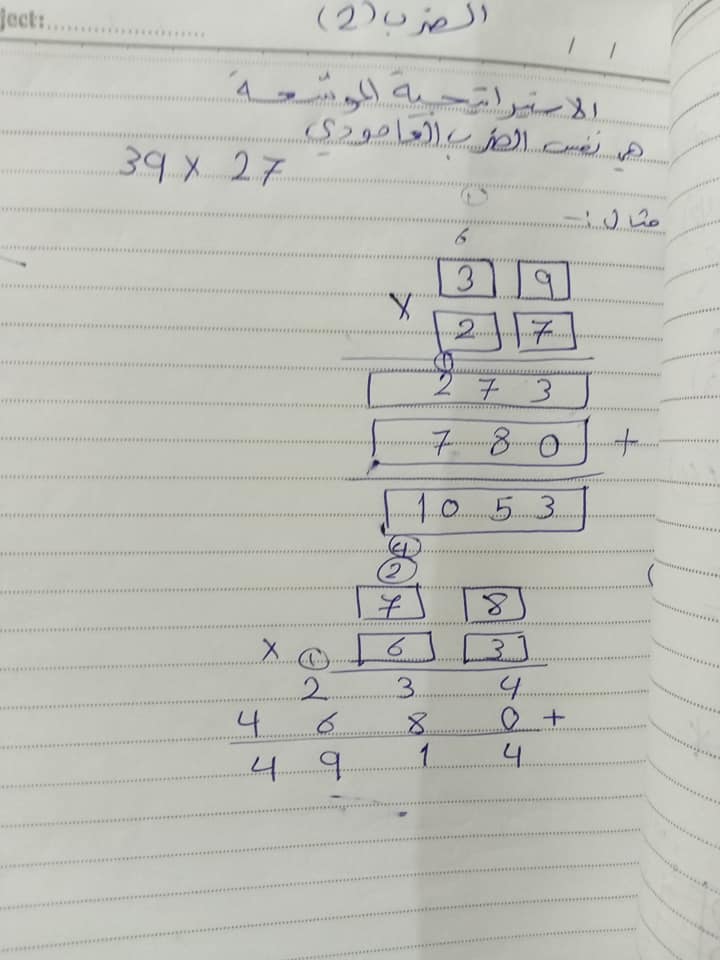 ject:
الضرب (2)
/ /
الاستراتيجية الموسعة
هي نفس الضرب العامودي
39 x 27
مثال :-
1
6
3 9
x
2 7
1
2 7 3
7 8 0 +
1 0 5 3
4
2
7 8
x 1 6 3
2 3 4
4 6 8 0 +
4 9 1 4